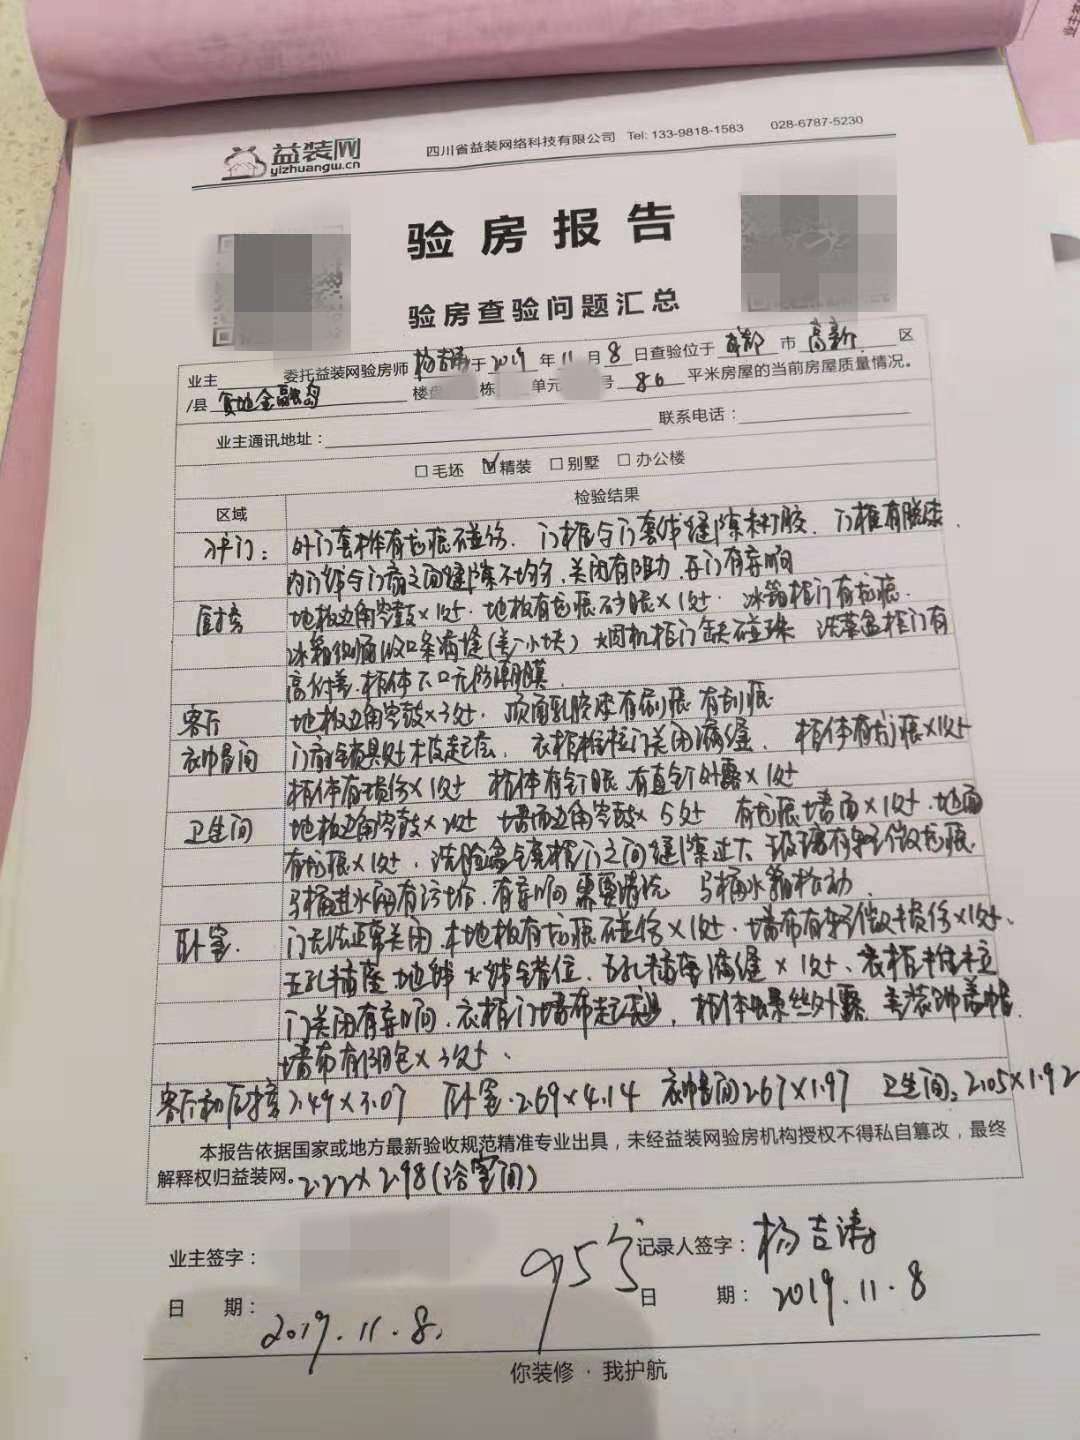 益装网
yizhuangw.cn
四川省益装网络科技有限公司 Tel: 133-9818-1583 028-6787-5230
验房报告
验房查验问题汇总
业主 委托益装网验房师 杨吉涛 于 2019 年 11 月 8 日查验位于 成都 市 高新 区
/县 金融岛 楼盘 栋 单元 号 86 平米房屋的当前房屋质量情况。
业主通讯地址： 联系电话：
□毛坯 ☑精装 □别墅 □办公楼
区域 检验结果
入户门： 外门套框有划痕碰伤. 门框与门套线缝隙未打胶. 门框有脱漆.
内门线与门扇之间缝隙不均匀,关闭有阻力.开门有异响
厨房 地板边角空鼓×1处. 地板有划痕砂眼×1处. 冰箱柜门有划痕.
冰箱侧面收口条有缝(差一小块) 烟机柜门缺碰珠 洗菜盆柜门有
高低差.柜体下口无防潮膜.
客厅 地板边角空鼓×3处. 顶面乳胶漆有刷痕 有刮痕
衣帽间 门扇锁具处木皮起层. 衣柜推拉门关闭漏缝. 柜体有划痕×1处
柜体有损伤×1处 柜体有钉眼.有直钉外露×1处
卫生间 地板边角空鼓×2处 墙面边角空鼓×5处 有划痕墙面×1处.地面
有划痕×1处. 洗脸盆镜柜门之间缝隙过大 玻璃有轻微划痕.
马桶进水阀有污垢.有异响需要清洗 马桶水箱松动.
卧室. 门无法正常关闭.木地板有划痕碰伤×1处.墙布有轻微破损伤×1处.
五孔插座地线火线错位.五孔插座漏缝×1处.衣柜推拉
门关闭有异响.衣柜门墙布起皱.柜体螺丝外露.差装饰盖帽.
墙布有鼓包×3处.
客厅和厨房 ×3.07 卧室.2.69×4.14 衣帽间2.67×1.97 卫生间:2.05×1.92
本报告依据国家或地方最新验收规范精准专业出具，未经益装网验房机构授权不得私自篡改，最终
解释权归益装网。2.22×2.98(浴室间)
业主签字： 95分 记录人签字：杨吉涛
日 期：2019.11.8. 日 期：2019.11.8
你装修·我护航